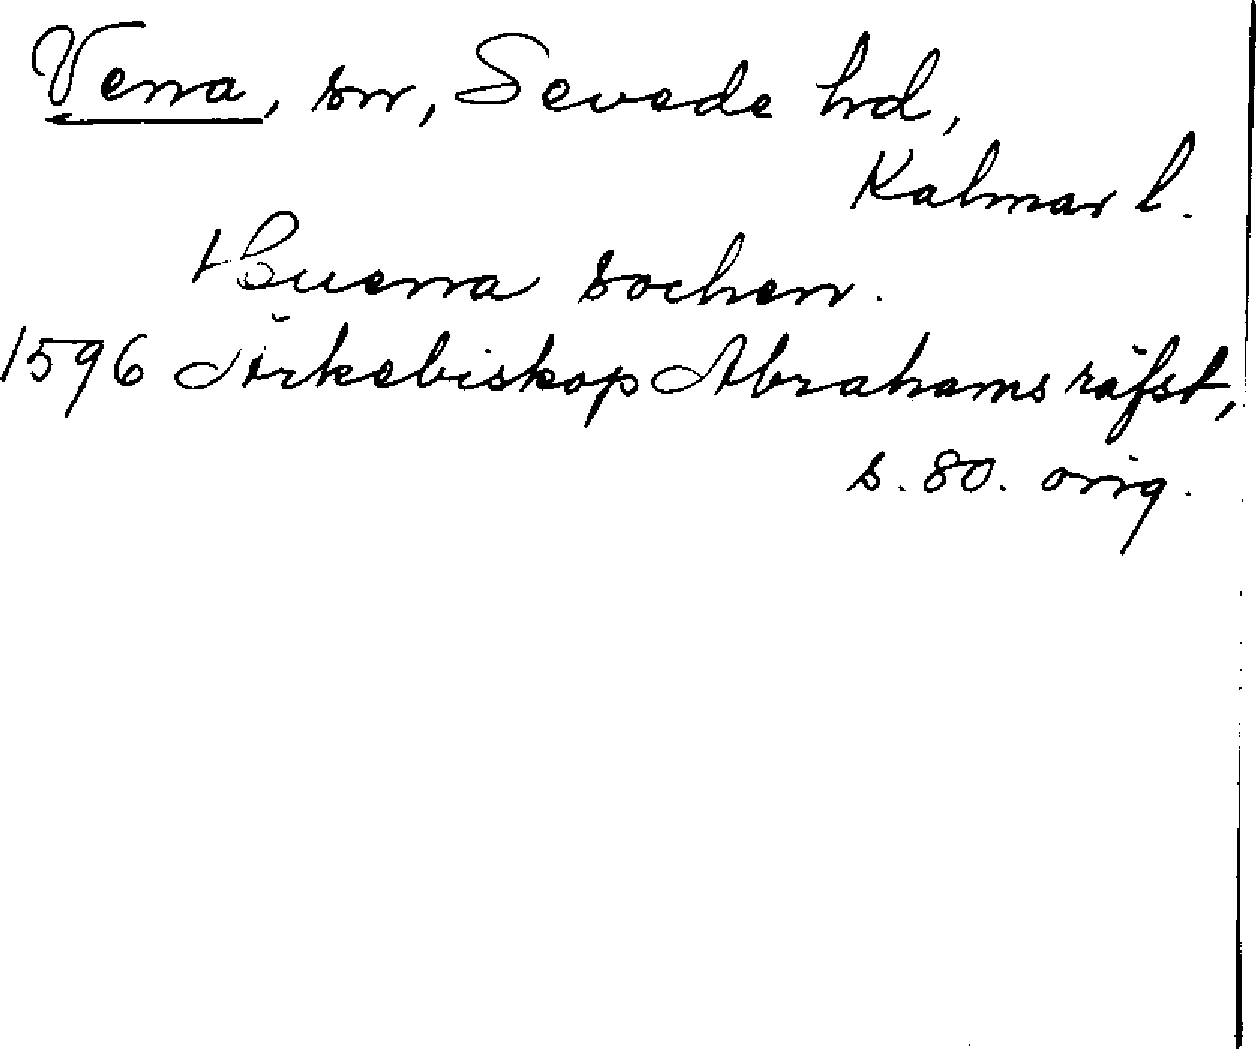 Vena, sn, Sevede hd,
Kalmar l.
Huena sochen.
1596 Ärkebiskop Abrahams räfst,
s. 80. orig.